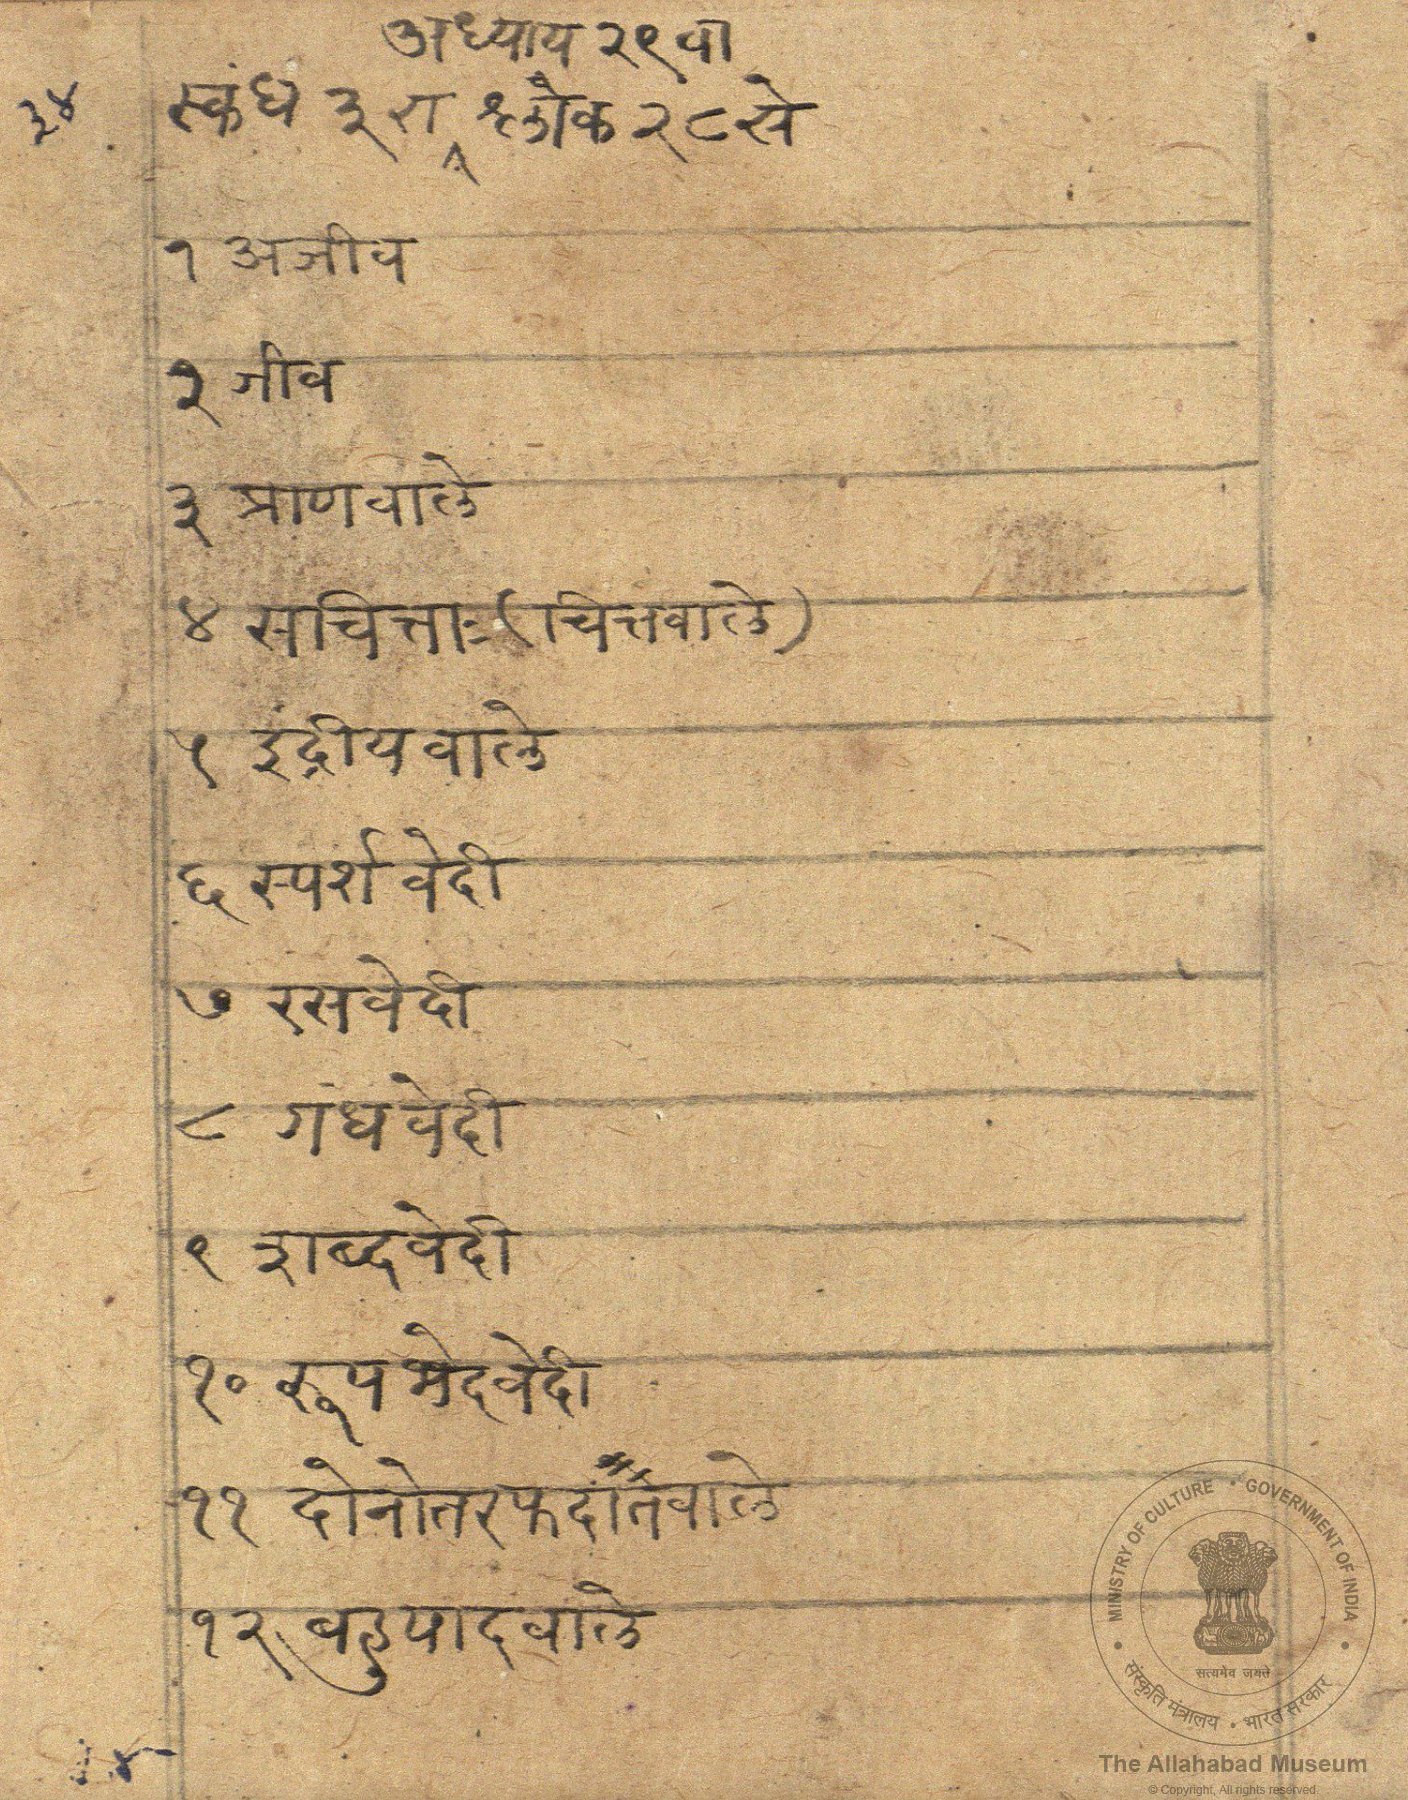 अध्याय २९वा
३४
स्कंध ३रा श्लोक २८से
१ अजीव
२ जीव
३ प्राणवाले
४ सचित्ताः (चित्तवाले)
५ इंद्रीयवाले
६ स्पर्शवेदी
७ रसवेदी
८ गंधवेदी
९ शब्दवेदी
१० रूपभेदवेदी
११ दोनोतरफदाँतवाले
१२ बहुपादवाले
MINISTRY OF CULTURE • GOVERNMENT OF INDIA
सत्यमेव जयते
संस्कृति मंत्रालय • भारत सरकार
The Allahabad Museum
© Copyright, All rights reserved.